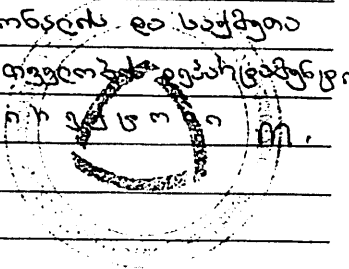 ონალის და საქმეთა
თველობის დეპარტამენტი
ირექტორი თ.